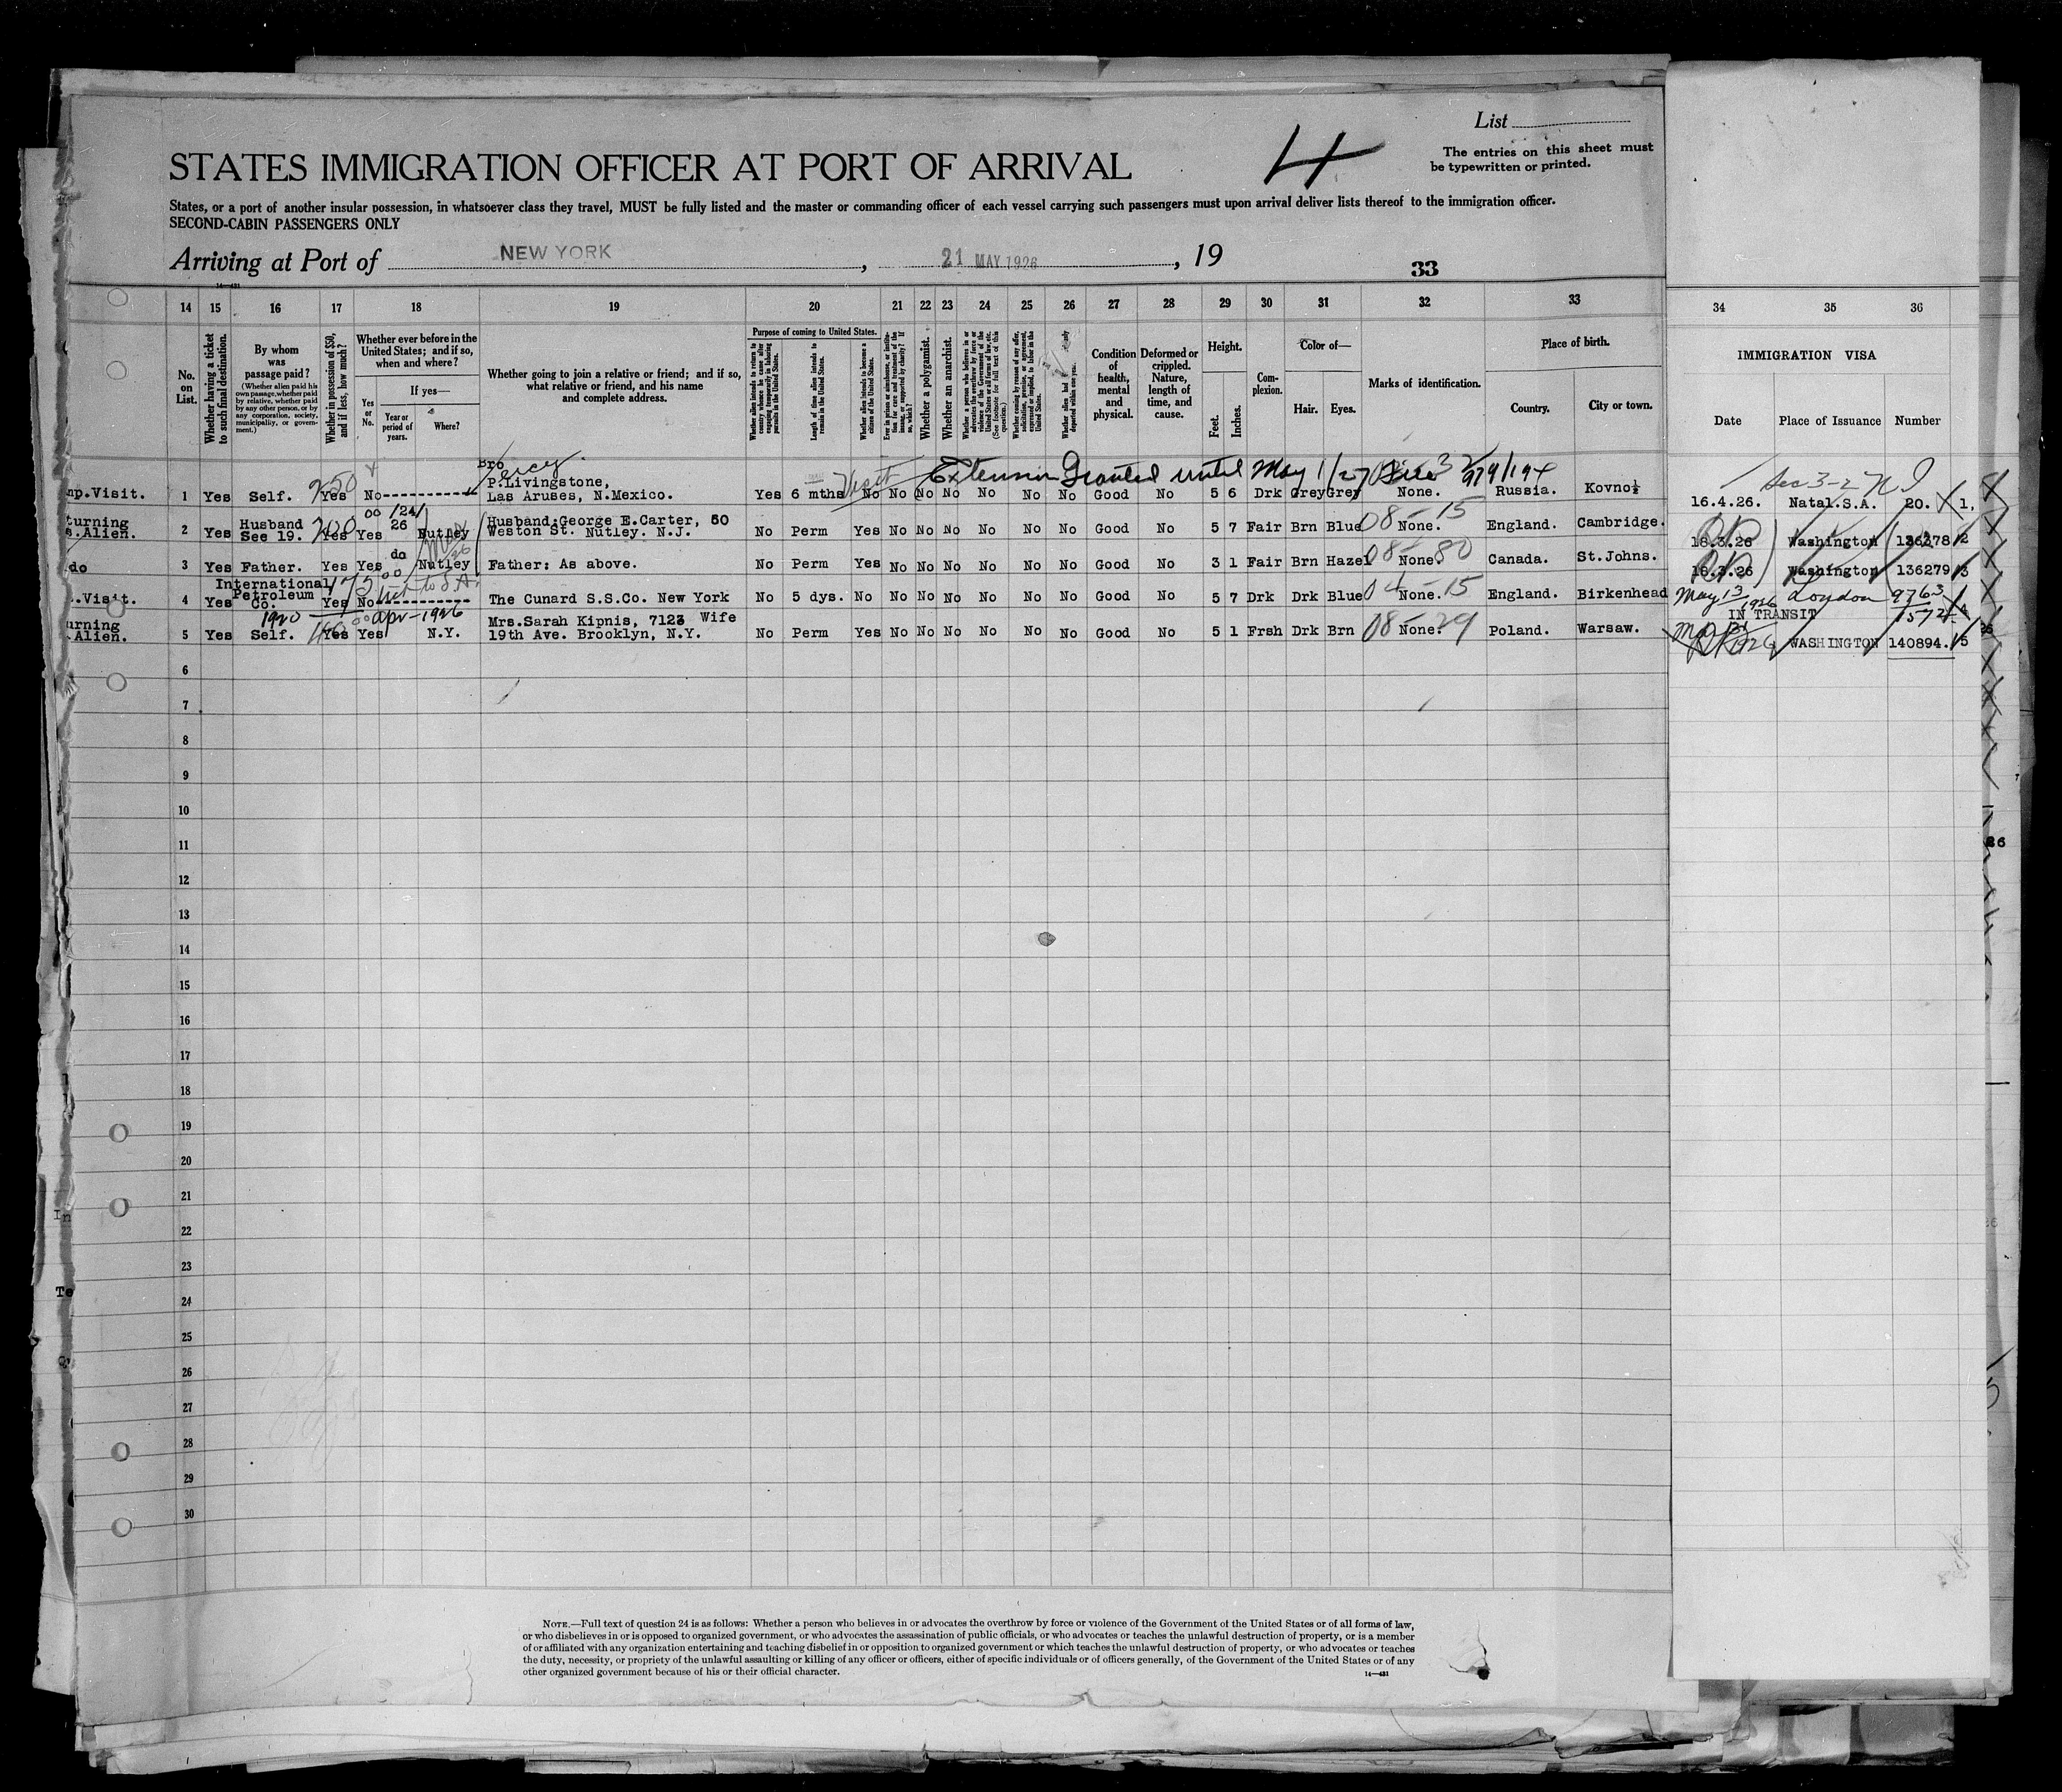 List
4
The entries on this sheet must
be typewritten or printed.
STATES IMMIGRATION OFFICER AT PORT OF ARRIVAL
States, or a port of another insular possession, in whatsoever class they travel, MUST be fully listed and the master or commanding officer of each vessel carrying such passengers must upon arrival deliver lists thereof to the immigration officer.
SECOND-CABIN PASSENGERS ONLY
Arriving at Port of NEW YORK, 21 MAY 1926, 19
33
14—431
14 15 16 17 18 19 20 21 22 23 24 25 26 27 28 29 30 31 32 33 34 35 36
No. on List.
Whether having a ticket to such final destination.
By whom was passage paid?
(Whether alien paid his own passage, whether paid by relative, whether paid by any other person, or by any corporation, society, municipality, or government.)
Whether in possession of $50, and if less, how much?
Whether ever before in the United States; and if so, when and where?
Yes or No.
If yes—
Year or period of years.
Where?
Whether going to join a relative or friend; and if so, what relative or friend, and his name and complete address.
Purpose of coming to United States.
Whether alien intends to return to country whence he came after engaging temporarily in laboring pursuits in the United States.
Length of time alien intends to remain in the United States.
Whether alien intends to become a citizen of the United States.
Whether a polygamist.
Whether an anarchist.
Condition of health, mental and physical.
Deformed or crippled. Nature, length of time, and cause.
Height.
Feet.
Inches.
Complexion.
Color of—
Hair.
Eyes.
Marks of identification.
Place of birth.
Country.
City or town.
IMMIGRATION VISA
Date
Place of Issuance
Number
Extension Granted until May 1/27
mp.Visit. 1 Yes Self. 250 Yes No Bro P.Livingstone, Las Aruses, N.Mexico. Yes 6 mths Visit No No No No No No No Good No 5 6 Drk Grey Grey None. Russia. Kovno 16.4.26. Natal.S.A. 20. 1,
turning s.Alien. 2 Yes Husband See 19. 200 Yes Yes /24/ 26 Nutley Husband:George E.Carter, 50 Weston St. Nutley. N.J. No Perm Yes No No No No No No Good No 5 7 Fair Brn Blue 08-15 None. England. Cambridge. 18.3.26 Washington 136278 2
do 3 Yes Father. Yes Yes do Nutley Father: As above. No Perm Yes No No No No No No Good No 3 1 Fair Brn Hazel 08-80 None. Canada. St.Johns. 18.3.26 Washington 136279 3
.Visit. 4 Yes International Petroleum Co. 175 Yes No The Cunard S.S.Co. New York No 5 dys. No No No No No No No Good No 5 7 Drk Drk Blue 04-15 None. England. Birkenhead May 13 1926 London 9763 IN TRANSIT 4
urning Alien. 5 Yes Self. Yes Yes 1920 Apr-1926 N.Y. Mrs.Sarah Kipnis, 7123 Wife 19th Ave. Brooklyn, N.Y. No Perm Yes No No No No No No Good No 5 1 Frsh Drk Brn 08-29 None. Poland. Warsaw. WASHINGTON 140894. 5
6
7
8
9
10
11
12
13
14
15
16
17
18
19
20
21
22
23
24
25
26
27
28
29
30
NOTE.—Full text of question 24 is as follows: Whether a person who believes in or advocates the overthrow by force or violence of the Government of the United States or of all forms of law,
or who disbelieves in or is opposed to organized government, or who advocates the assassination of public officials, or who advocates or teaches the unlawful destruction of property, or is a member
of or affiliated with any organization entertaining and teaching disbelief in or opposition to organized government or which teaches the unlawful destruction of property, or who advocates or teaches
the duty, necessity, or propriety of the unlawful assaulting or killing of any officer or officers, either of specific individuals or of officers generally, of the Government of the United States or of any
other organized government because of his or their official character.
14—431